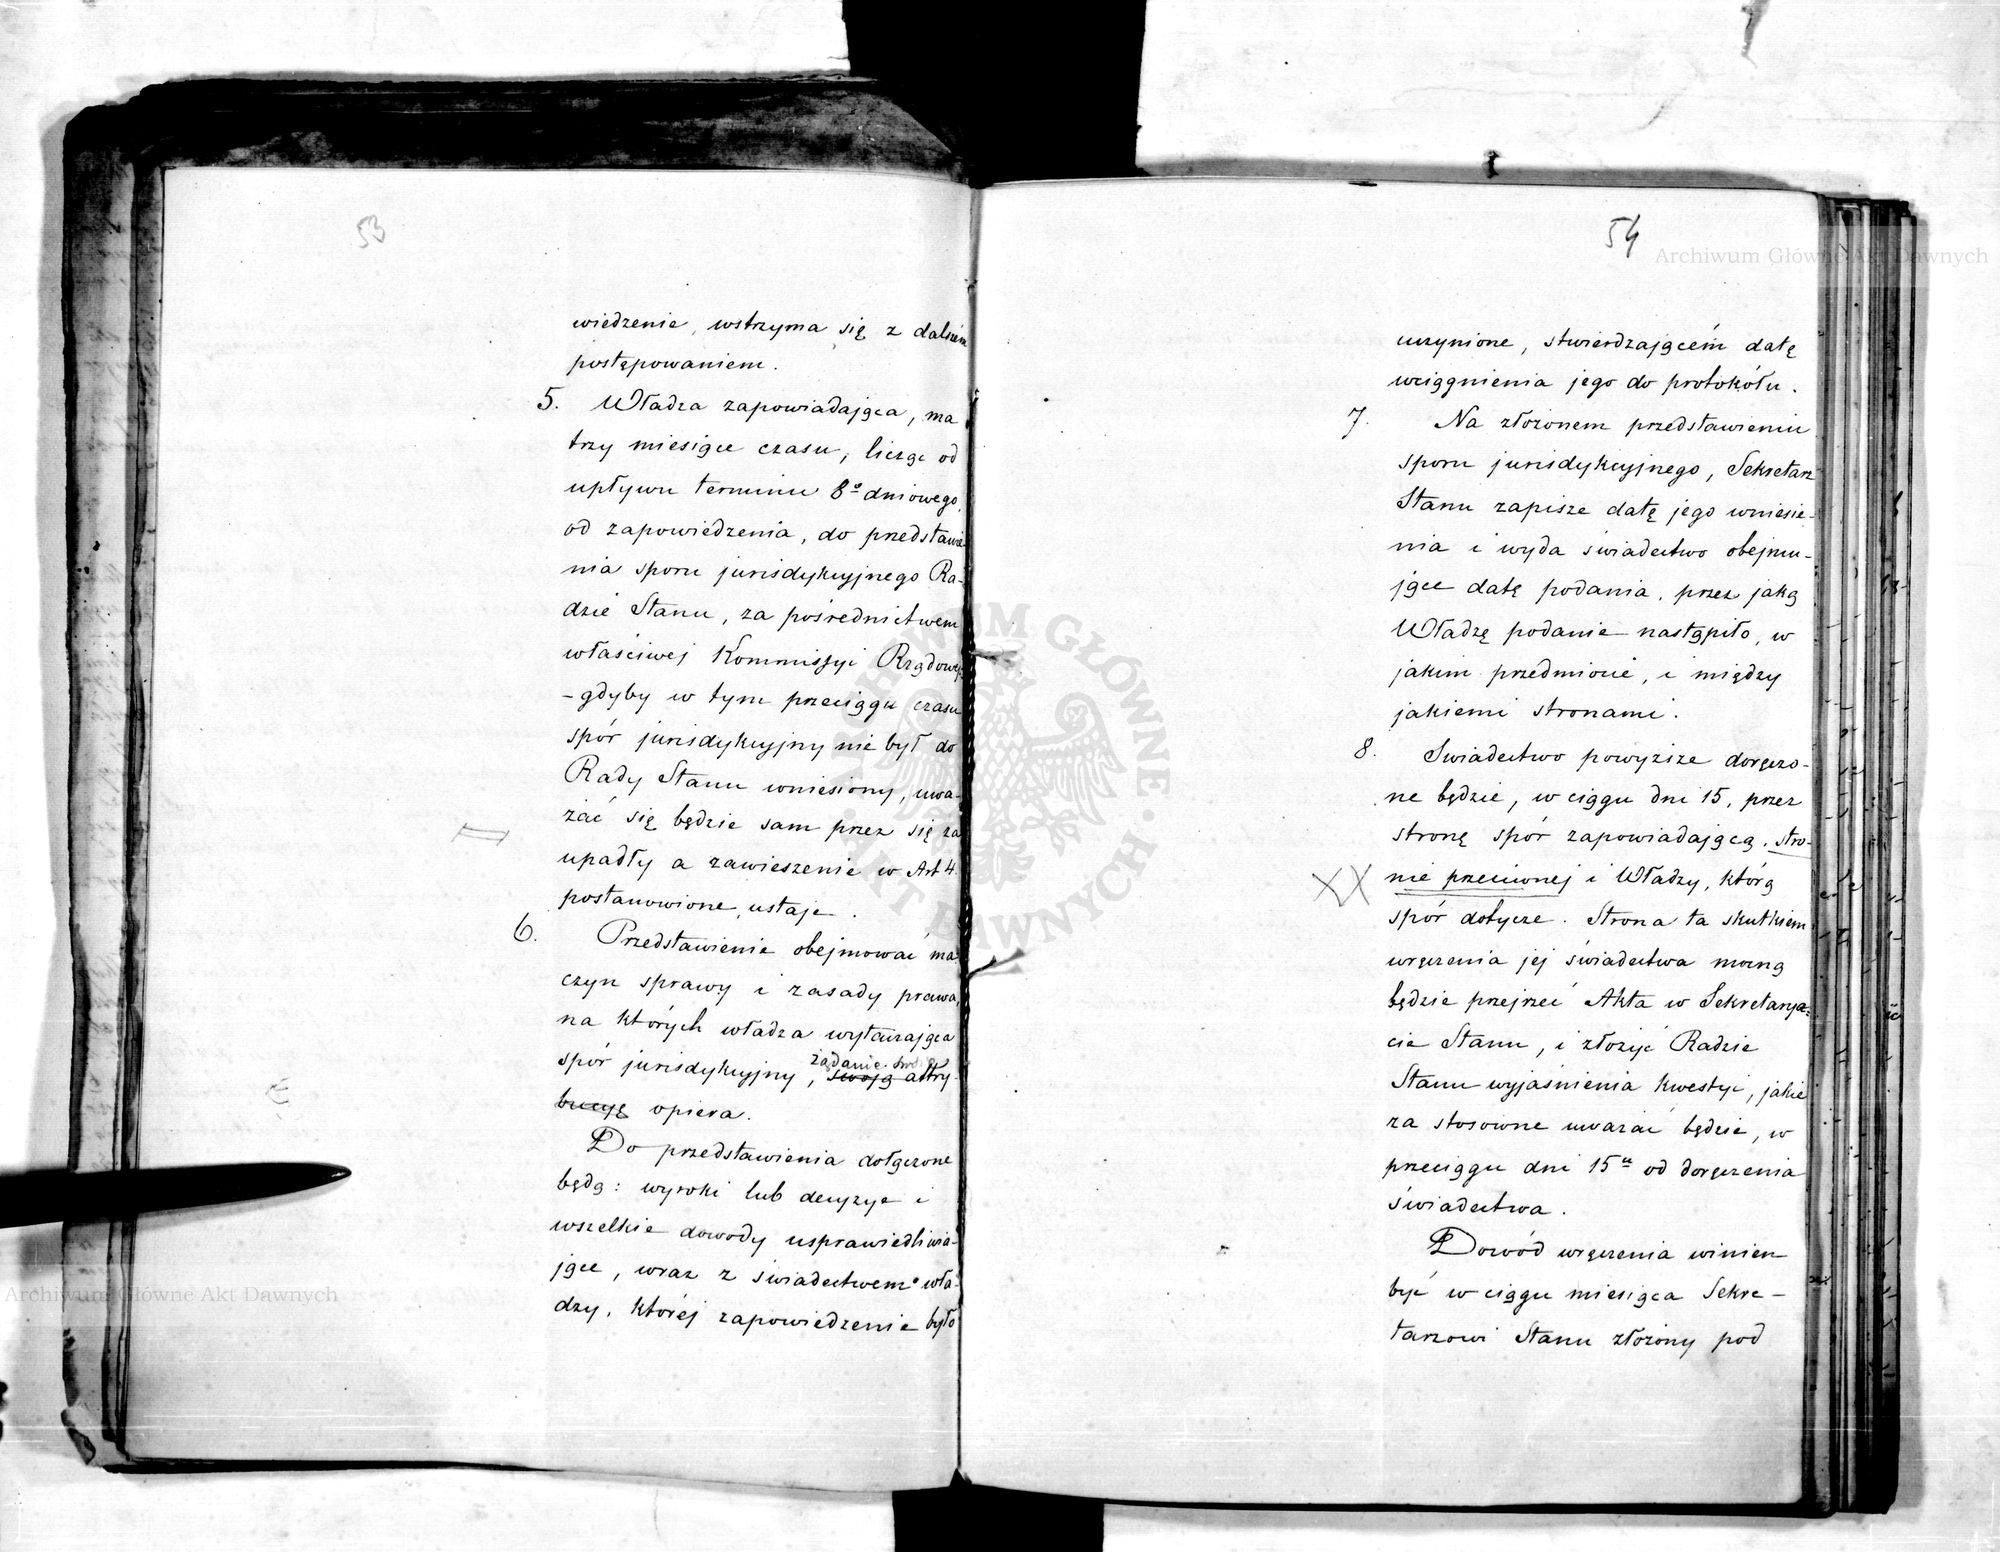 53
wiedzenie, wstrzyma się z dalszém
postępowaniem.
5. Władza zapowiadająca, ma
trzy miesiące czasu, licząc od
upływu terminu 8º dniowego,
od zapowiedzenia, do przedstawie-
nia sporu jurisdykcyjnego Ra-
dzie Stanu, za pośrednictwem
właściwej Kommissyi Rządowej,
– gdyby w tym przeciągu czasu
spór jurisdykcyjny nie był do
Rady Stanu wniesiony, uwa-
żać się będzie sam przez się za
upadły a zawieszenie w Art 4.
postanowione, ustaje.
6. Przedstawienie obejmować ma
czyn sprawy i zasady prawa,
na których władza wytaczająca
żądanie swoje
spór jurisdykcyjny, swoją attry-
bucyę opiera.
Do przedstawienia dołączone
będą: wyroki lub decyzye i
wszelkie dowody usprawiedliwia-
jące, wraz z świadectwem wła-
dzy, której zapowiedzenie było
54
uczynione, stwierdzającém datę
wciągnienia jego do protokółu.
7. Na złożonem przedstawieniu
sporu jurisdykcyjnego, Sekretarz
Stanu zapisze datę jego wniesie-
nia i wyda świadectwo obejmu-
jące datę podania, przez jaką
Władzę podanie nastąpiło, w
jakim przedmiocie, i między
jakiemi stronami.
8. Świadectwo powyższe doręczo-
ne będzie, w ciągu dni 15, przez
stronę spór zapowiadającą, stro-
XX nie przeciwnej i Władzy, którą
spór dotycze. Strona ta skutkiem
wręczenia jej świadectwa mocną
będzie przejrzeć Akta w Sekretarya-
cie Stanu, i złożyć Radzie
Stanu wyjaśnienia kwestyi, jakie
za stosowne uważać będzie, w
przeciągu dni 15u od doręczenia
świadectwa.
Dowód wręczenia winien
być w ciągu miesiąca Sekre-
tarzowi Stanu złożony pod
Archiwum Główne Akt Dawnych
Archiwum Główne Akt Dawnych
ARCHIWUM GŁÓWNE AKT DAWNYCH